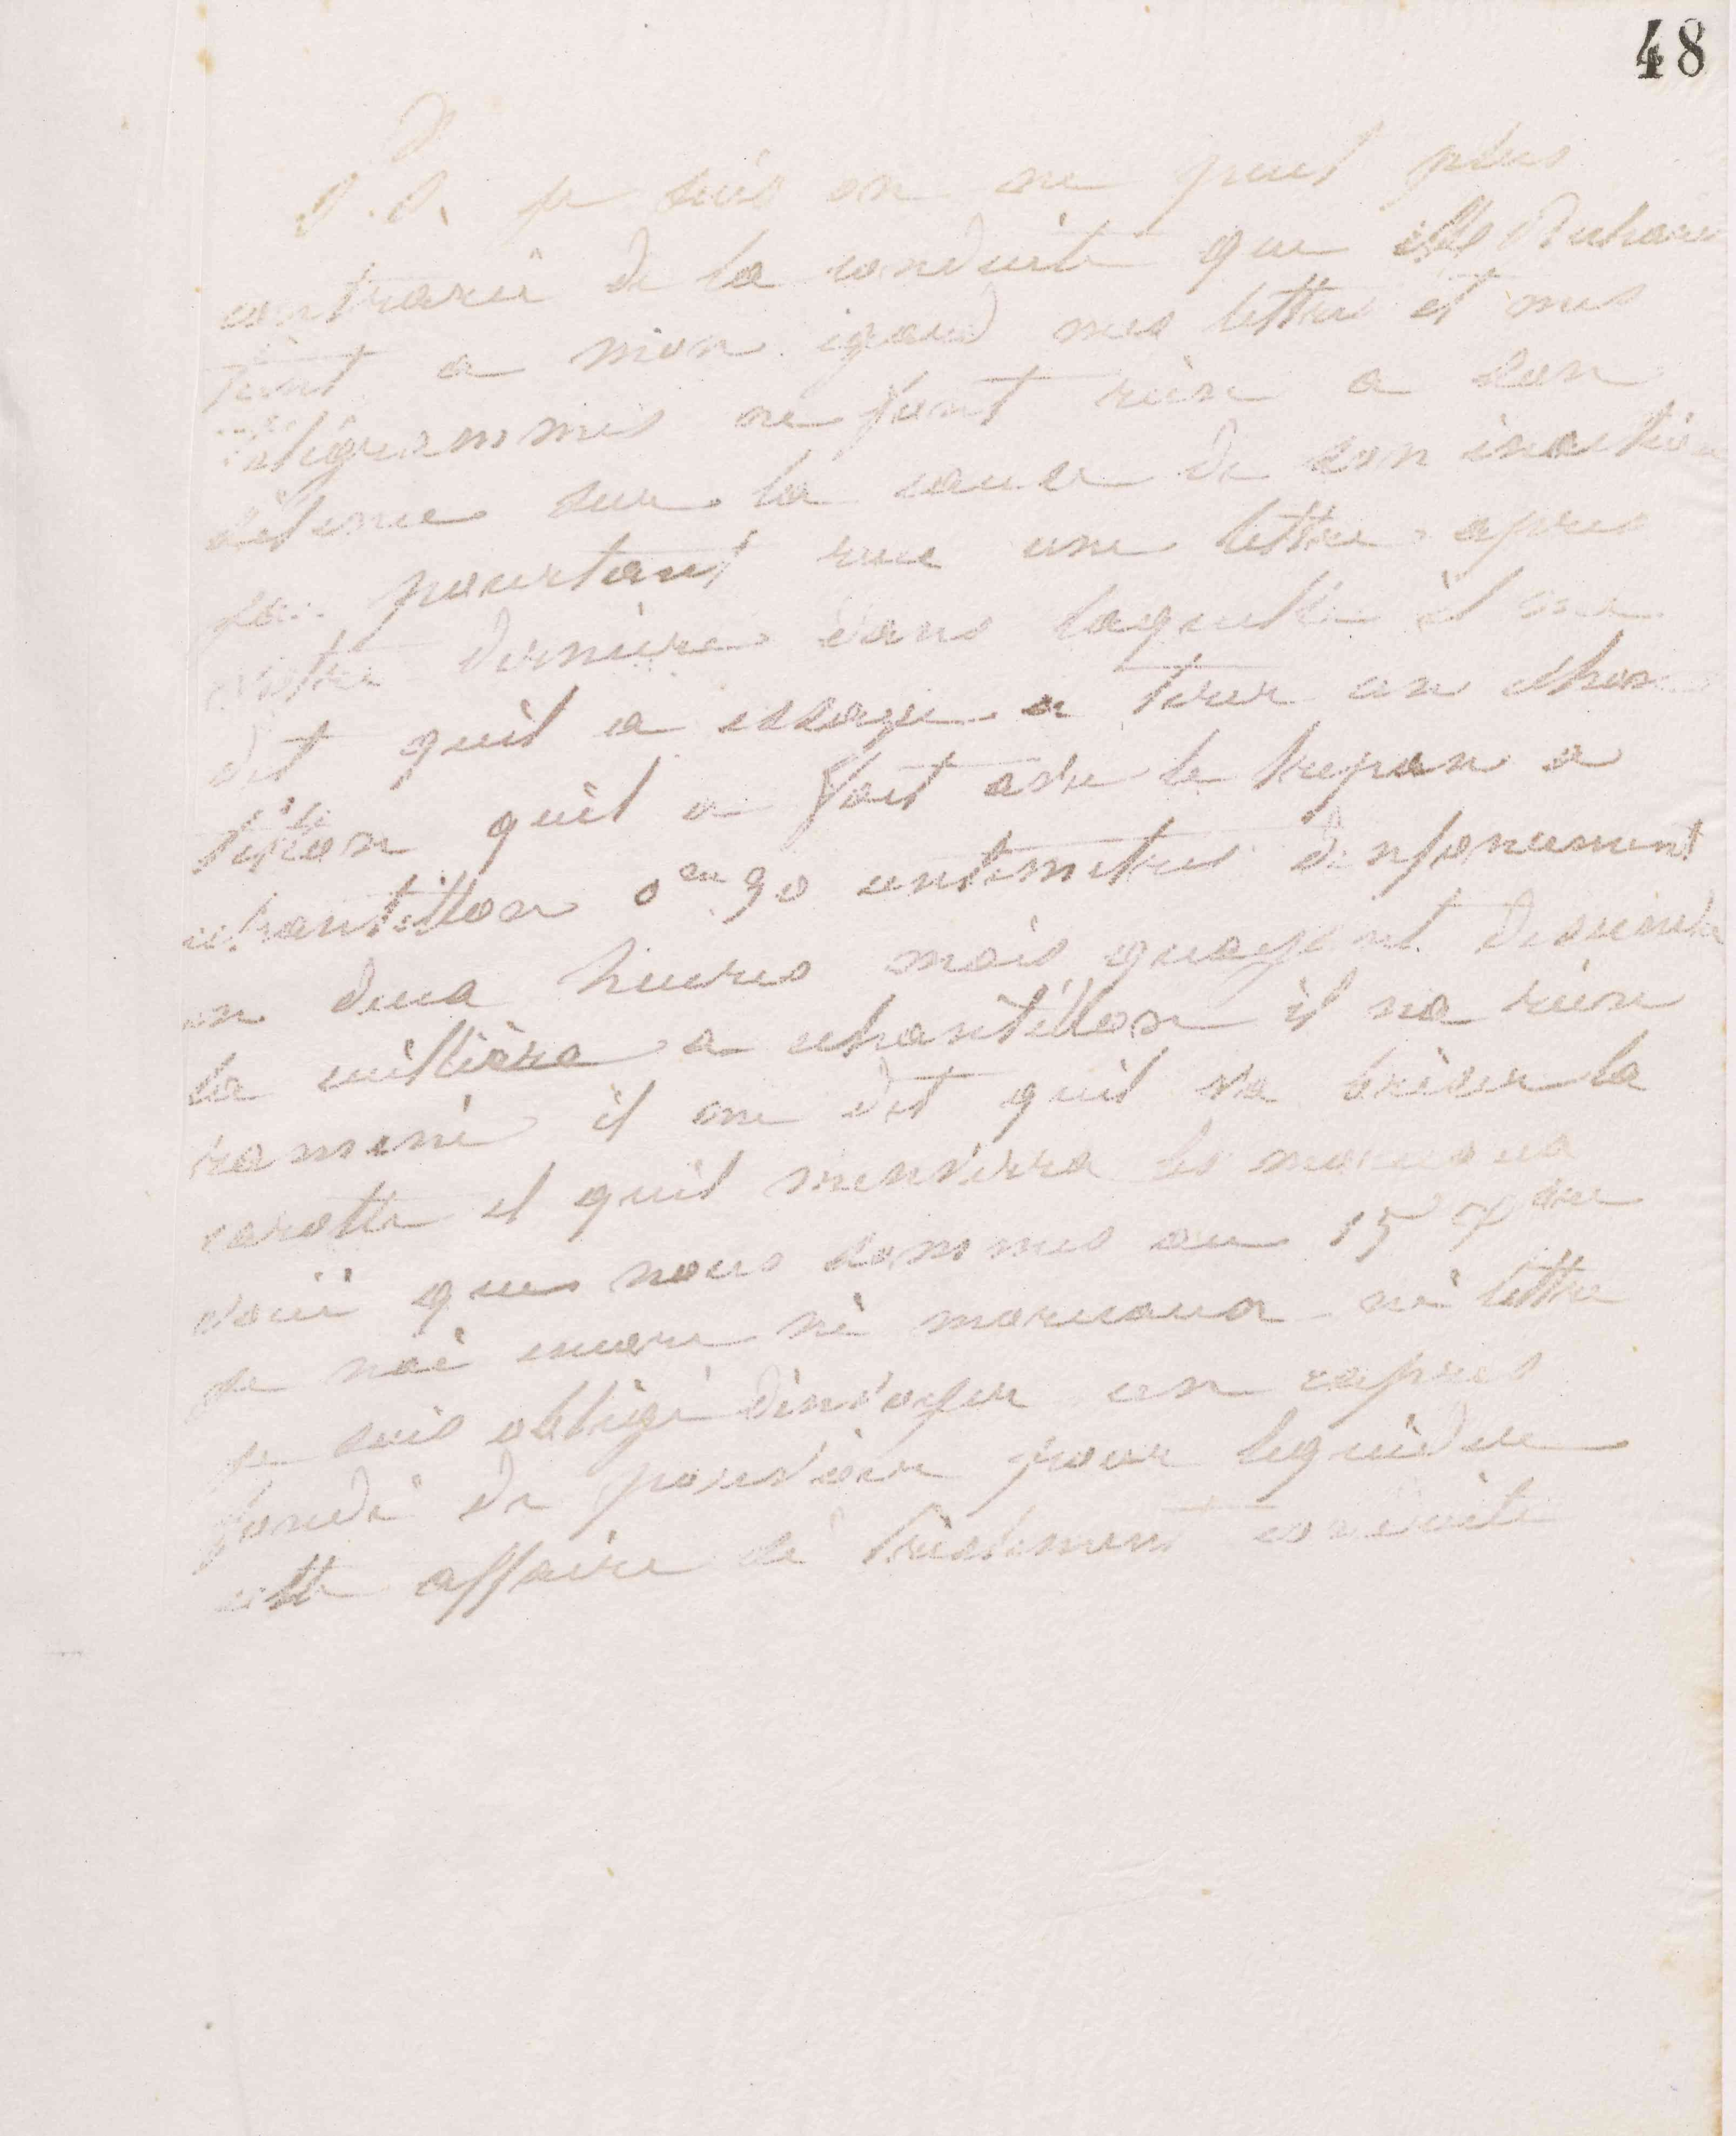 48
P.S. je suis on ne peut plus
contrarié de la conduite que Mr Richard
tient a mon égard mes lettres et mes
télégrammes ne font rien a son
silence sur la cause de son inaction
jai pourtant recu une lettre apres
votre derniere dans laquelle il me
dit quil a essaye a tirer un echan
tillon quil a fait avec le trepan a
echantillon 0m 90 centimetres denfoncement
en deux heures mais quayant descendu
la cuillière a echantillon il na rien
ramené il me dit quil va briser la
carotte et quil menverra les morceaux
voici que nous sommes au 15 7bre
je nai encore ni morceaux ni lettre
je suis obligé denvoyer un expres
fondé de pouvoir pour liquider
cette affaire si tristement conduite